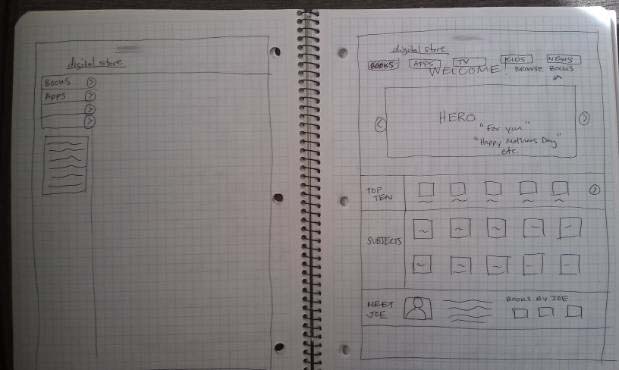 digital store
Books
Apps
digital store
BOOKS APPS TV KIDS NEWS
WELCOME BROWSE BOOKS
HERO
"For you"
"Happy Mothers Day"
etc.
TOP
TEN
SUBJECTS
MEET
JOE
BOOKS BY JOE